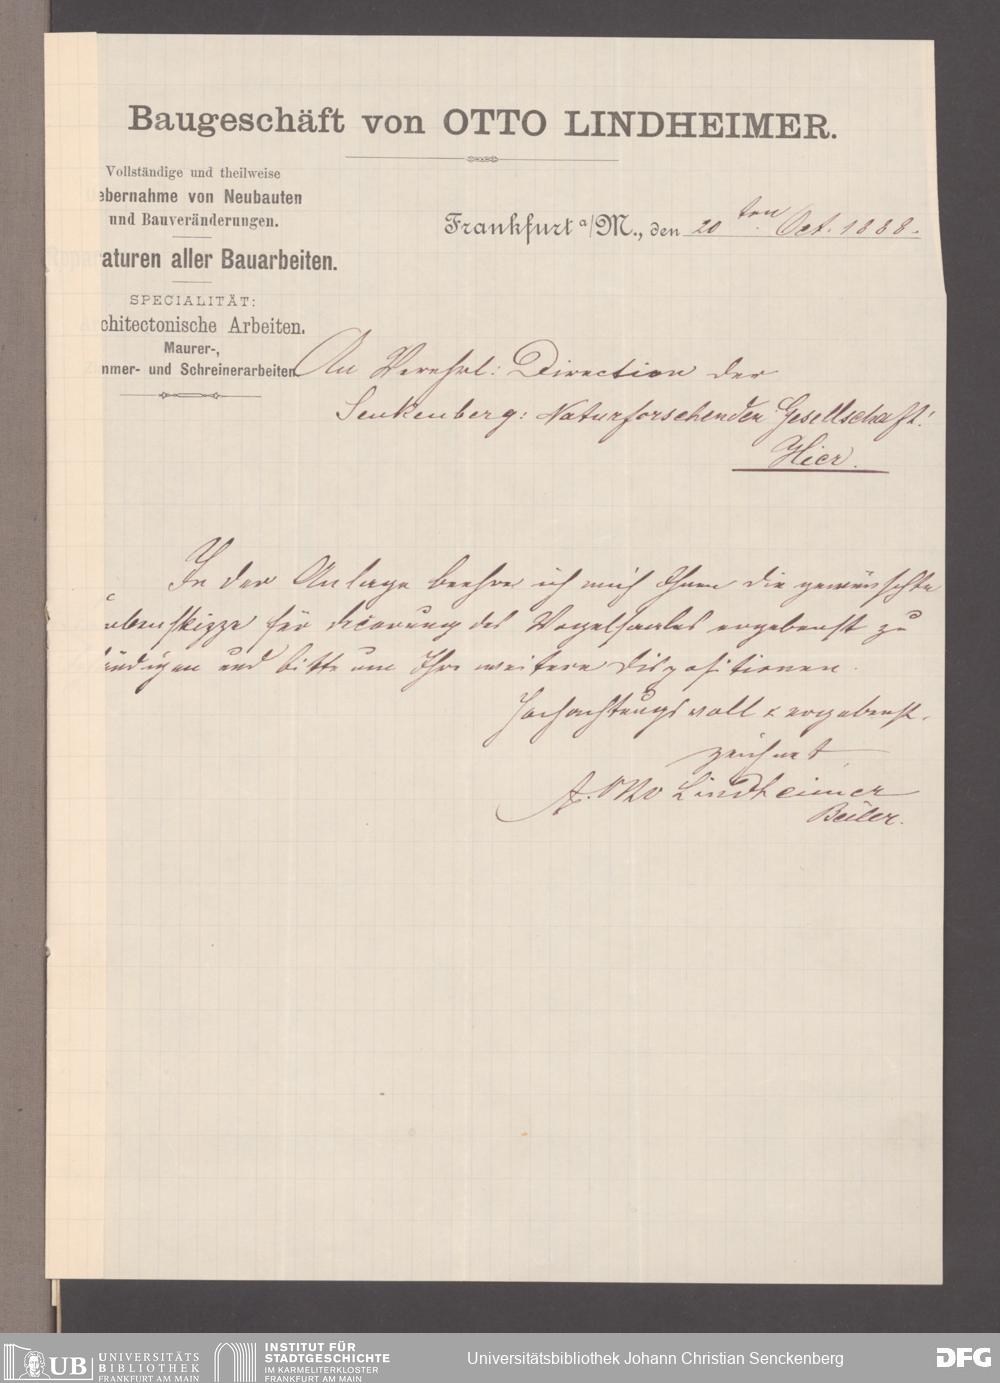 Baugeschäft von OTTO LINDHEIMER.
Vollständige und theilweise
ebernahme von Neubauten
und Bauveränderungen.
araturen aller Bauarbeiten.
SPECIALITÄT:
chitectonische Arbeiten.
Maurer-,
mmer- und Schreinerarbeiten.
Frankfurt a/M., den 20 ten Oct. 1888.
An Verehrl: Direction der
Senkenberg: Naturforschenden Gesellschaft!
Hier.
In der Anlage beehre ich mich Ihnen die gewünschte
benskizze für Decorung des Vogelsaales ergebenst zu
händigen und bitte um Ihre weitere Dispositionen.
Hochachtungsvoll & ergebenst.
zeichnet
Otto Lindheimer
Beiler.
UB
UNIVERSITÄTS
BIBLIOTHEK
FRANKFURT AM MAIN
INSTITUT FÜR
STADTGESCHICHTE
IM KARMELITERKLOSTER
FRANKFURT AM MAIN
Universitätsbibliothek Johann Christian Senckenberg
DFG